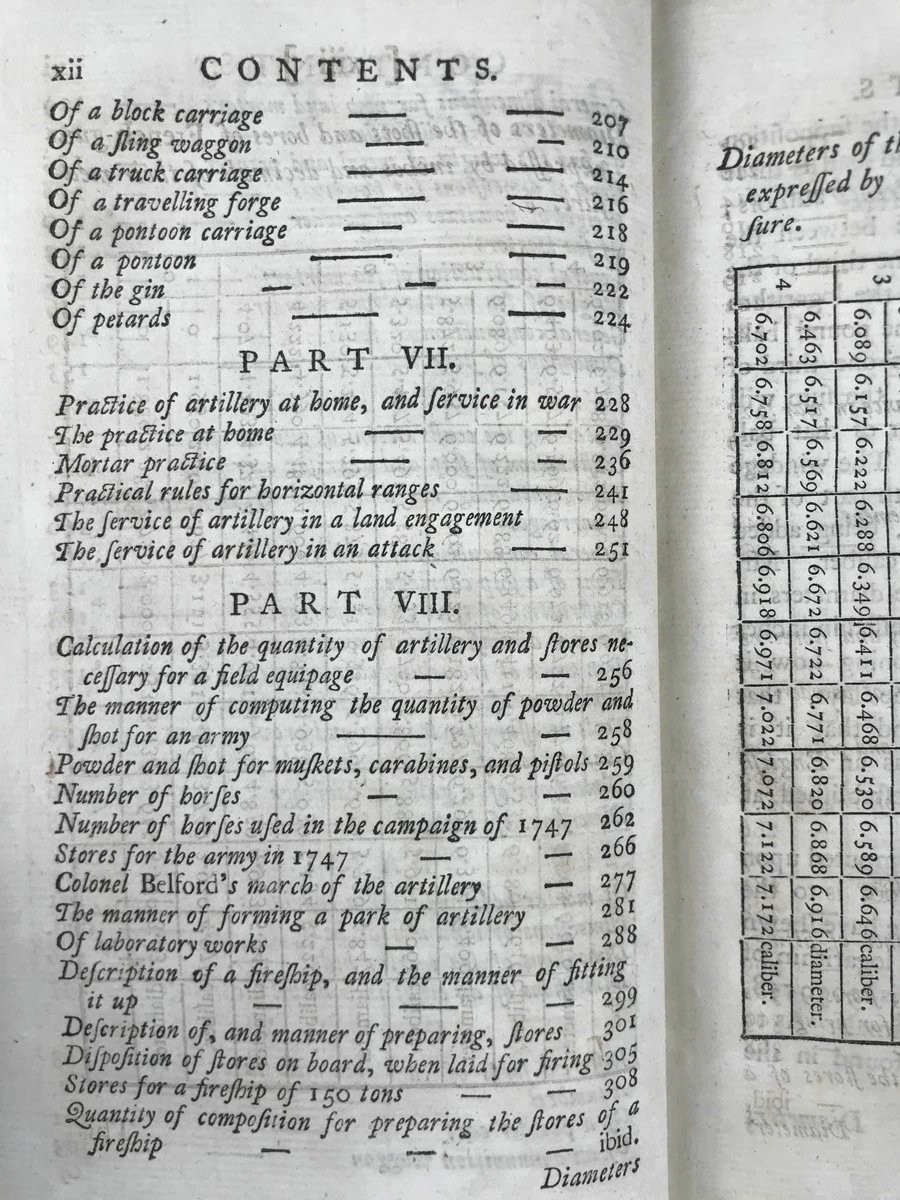 xii CONTENTS.
Of a block carriage — — 207
Of a ſling waggon — — 210
Of a truck carriage — — 214
Of a travelling forge — — 216
Of a pontoon carriage — — 218
Of a pontoon — — 219
Of the gin — — — 222
Of petards — — 224
PART VII.
Practice of artillery at home, and ſervice in war 228
The practice at home — — 229
Mortar practice — — 236
Practical rules for horizontal ranges — 241
The ſervice of artillery in a land engagement 248
The ſervice of artillery in an attack — 251
PART VIII.
Calculation of the quantity of artillery and ſtores ne-
ceſſary for a field equipage — — 256
The manner of computing the quantity of powder and
ſhot for an army — — 258
Powder and ſhot for muſkets, carabines, and piſtols 259
Number of horſes — — 260
Number of horſes uſed in the campaign of 1747 262
Stores for the army in 1747 — — 266
Colonel Belford's march of the artillery — 277
The manner of forming a park of artillery 281
Of laboratory works — — 288
Deſcription of a fireſhip, and the manner of fitting
it up — — — 299
Deſcription of, and manner of preparing, ſtores 301
Diſpoſition of ſtores on board, when laid for firing 305
Stores for a fireſhip of 150 tons — — 308
Quantity of compoſition for preparing the ſtores of a
fireſhip — — — ibid.
Diameters
Diameters of
expreſſed by
ſure.
3
6.089 6.157 6.222 6.288 6.349 6.411 6.468 6.530 6.589 6.646 caliber.
4
6.463 6.517 6.569 6.621 6.672 6.722 6.771 6.820 6.868 6.916 diameter.
6.702 6.758 6.812 6.806 6.918 6.971 7.022 7.072 7.122 7.172 caliber.